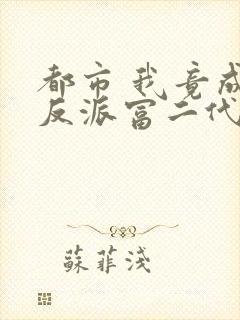 都市我竟成
反派富二代
蘇菲淺